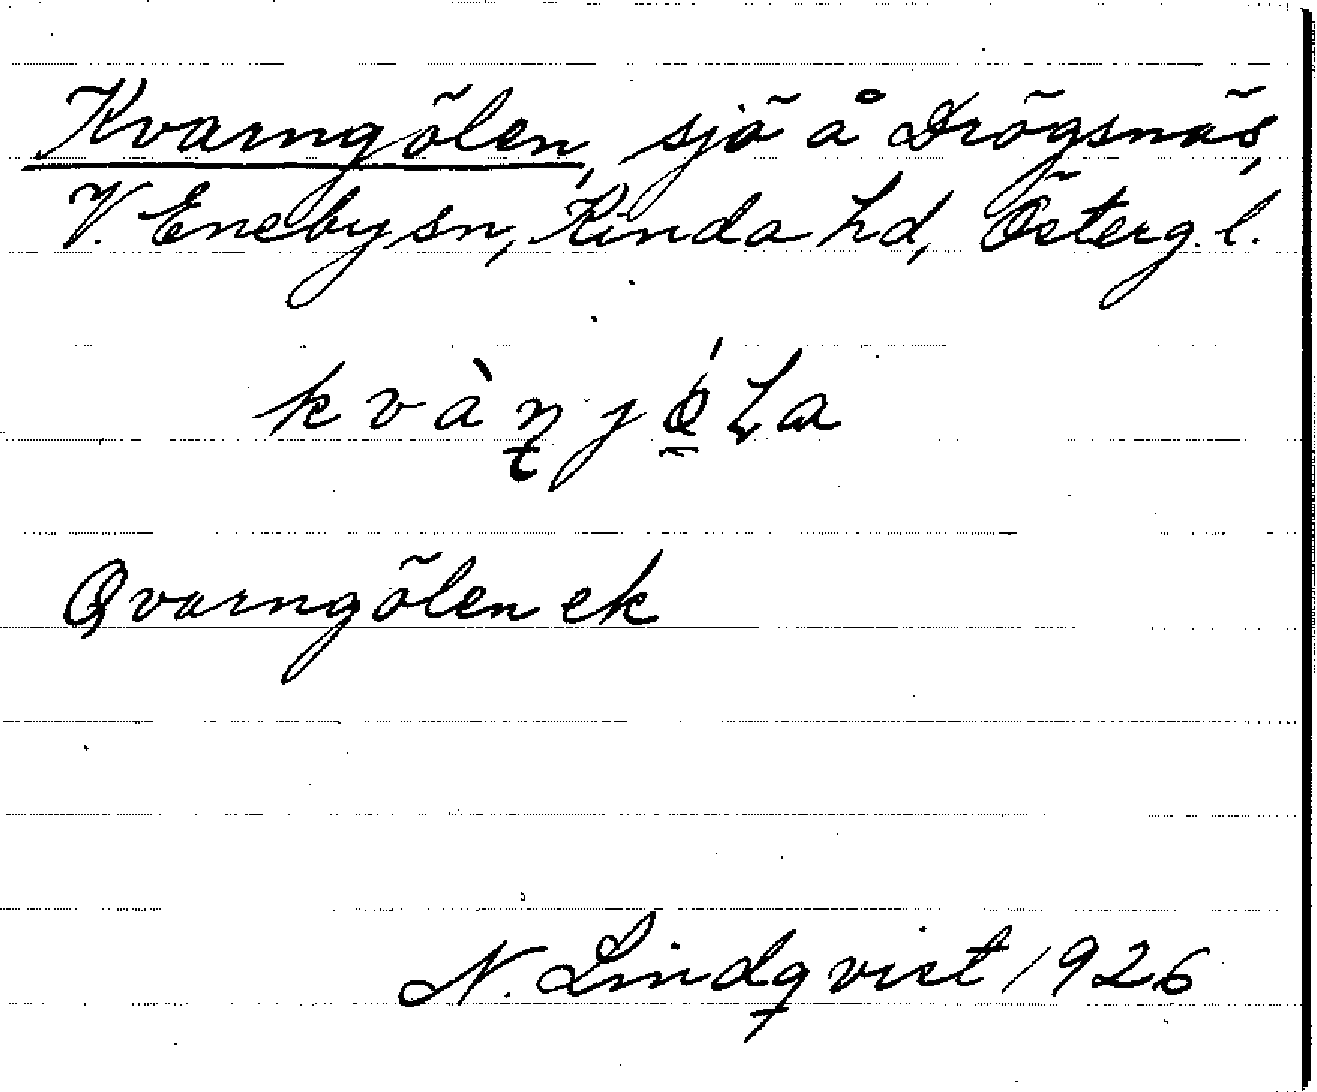 Kvarngölen, sjö å Drögsnäs,
V. Eneby sn, Kinda hd, Österg. l.
Qvarngölen ek
N. Lindqvist 1926